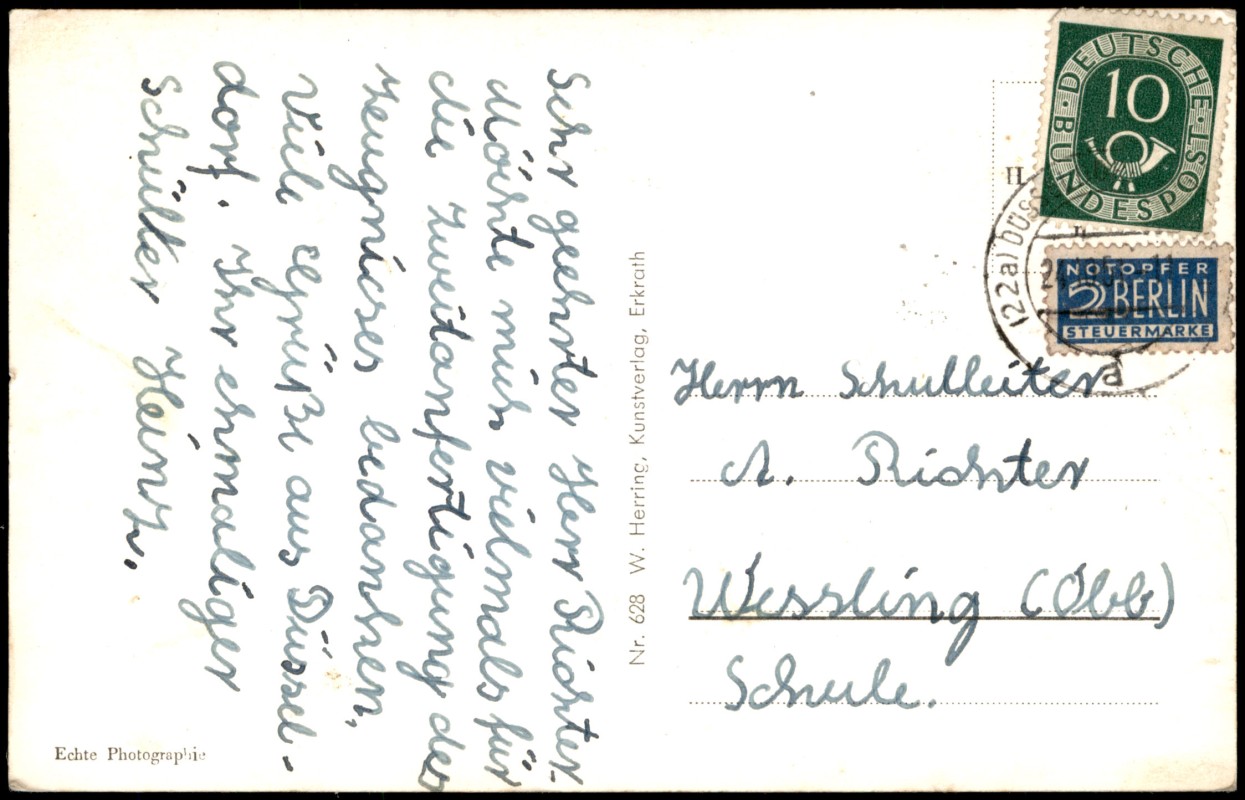 Sehr geehrter Herr Richter.
Möchte mich vielmals für
die Zweitanfertigung des
Zeugnisses bedanken,
Viele Grüße aus Düssel-
dorf. Ihr ehmaliger
Schüller Heinz.
Echte Photographie
Nr. 628 W. Herring, Kunstverlag, Erkrath
DEUTSCHE BUNDESPOST
10
NOTOPFER
2 BERLIN
STEUERMARKE
(22a) DÜSS
Herrn Schulleiter
A. Richter
Wessling (Obb)
Schule.